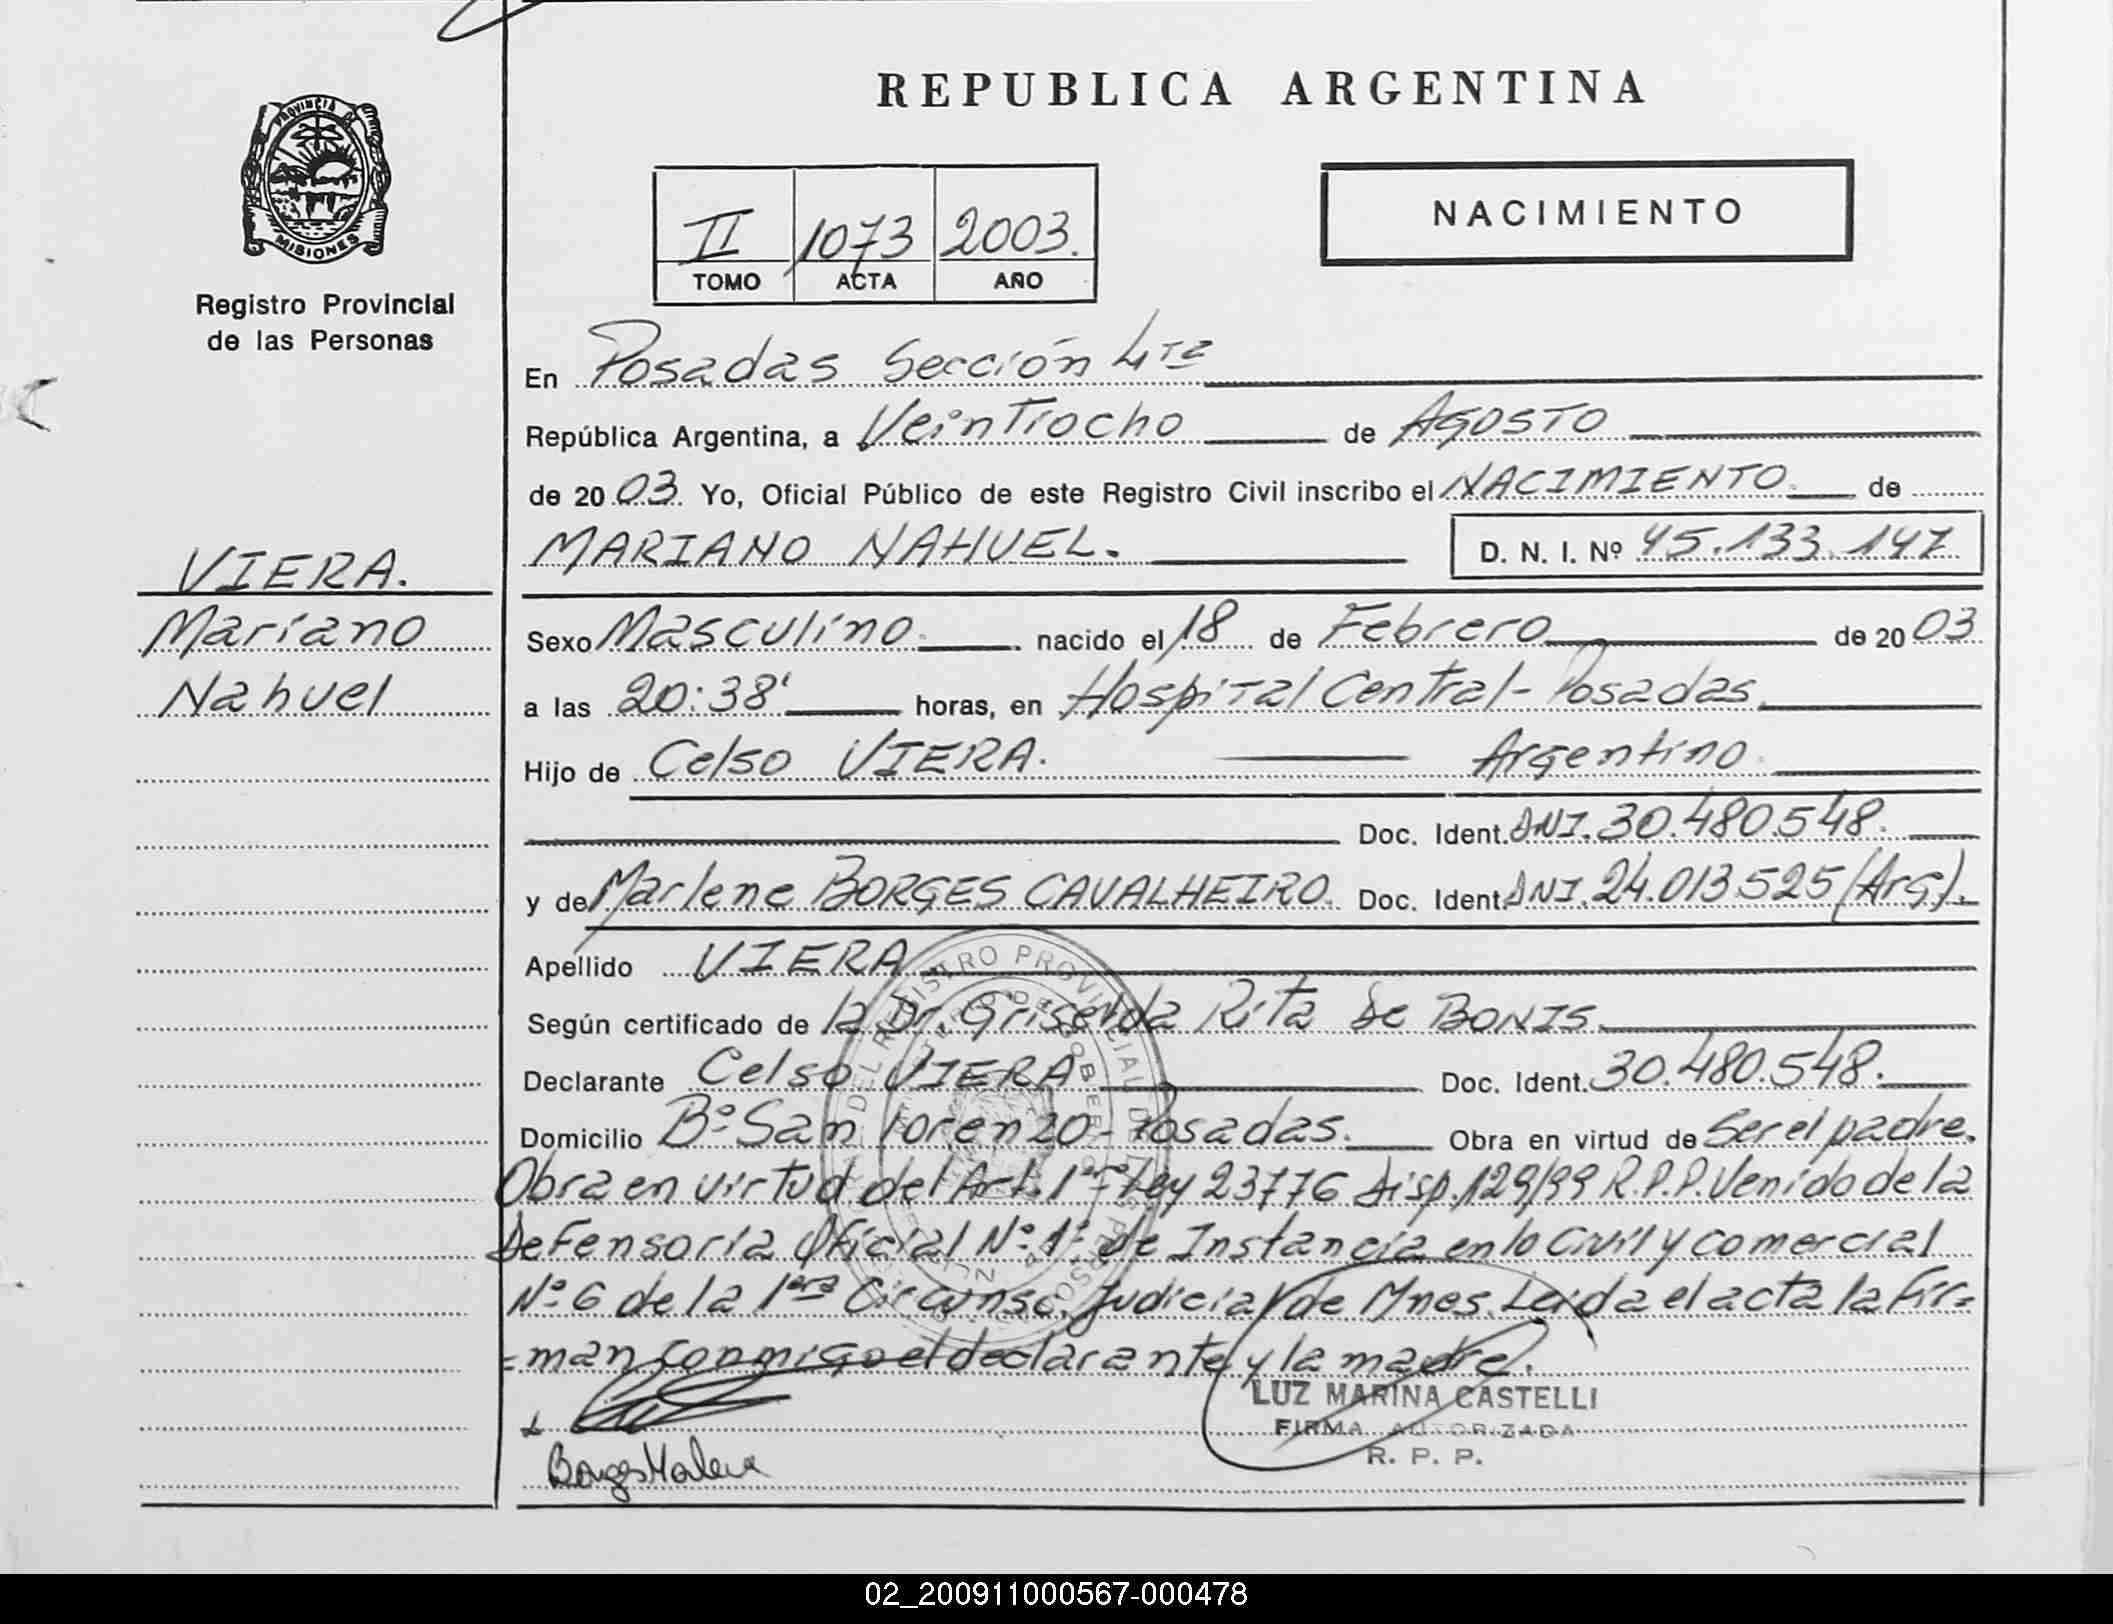 REPUBLICA ARGENTINA
PROVINCIA DE
MISIONES
Registro Provincial
de las Personas
NACIMIENTO
II 1073 2003.
TOMO ACTA AÑO
En Posadas Sección 4ta
República Argentina, a Veintiocho de Agosto
de 2003. Yo, Oficial Público de este Registro Civil inscribo el NACIMIENTO. de
MARIANO NAHUEL. D. N. I. Nº 45.133.147
VIERA.
Mariano
Nahuel
Sexo Masculino. nacido el 18 de Febrero de 2003
a las 20:38' horas, en Hospital Central - Posadas.
Hijo de Celso VIERA. Argentino.
Doc. Ident. DNI. 30.480.548.
y de Marlene BORGES CAVALHEIRO. Doc. Ident. DNI. 24.013.525 (Arg).
Apellido VIERA
Según certificado de la Dr. Griselda Rita De BONIS.
Declarante Celso VIERA Doc. Ident. 30.480.548.
Domicilio Bº San lorenzo - Posadas. Obra en virtud de Ser el padre.
Obra en virtud del Art. 1ro Ley 23776 Disp. 129/99 R.P.P. Venido de la
Defensoria Oficial Nº 1º de Instancia en lo Civil y comercial
Nº 6 de la 1era Circunsc. Judicial de Mnes. Leida el acta la fir=
=man conmigo el declarante y la madre.
LUZ MARINA CASTELLI
FIRMA AUTORIZADA
R. P. P.
Borges Marlene
02_200911000567-000478